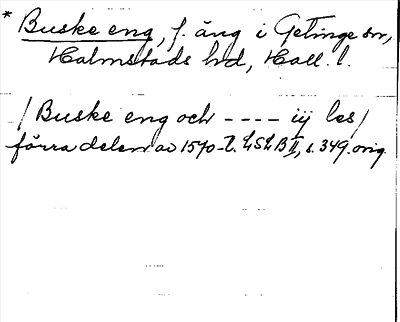 * Buske eng, f. äng i Getinge sn,
Halmstads hd, Hall. l.
/Buske eng och ---- iij les/
förra delen av 1570-t. LSLB II, s. 349. orig.